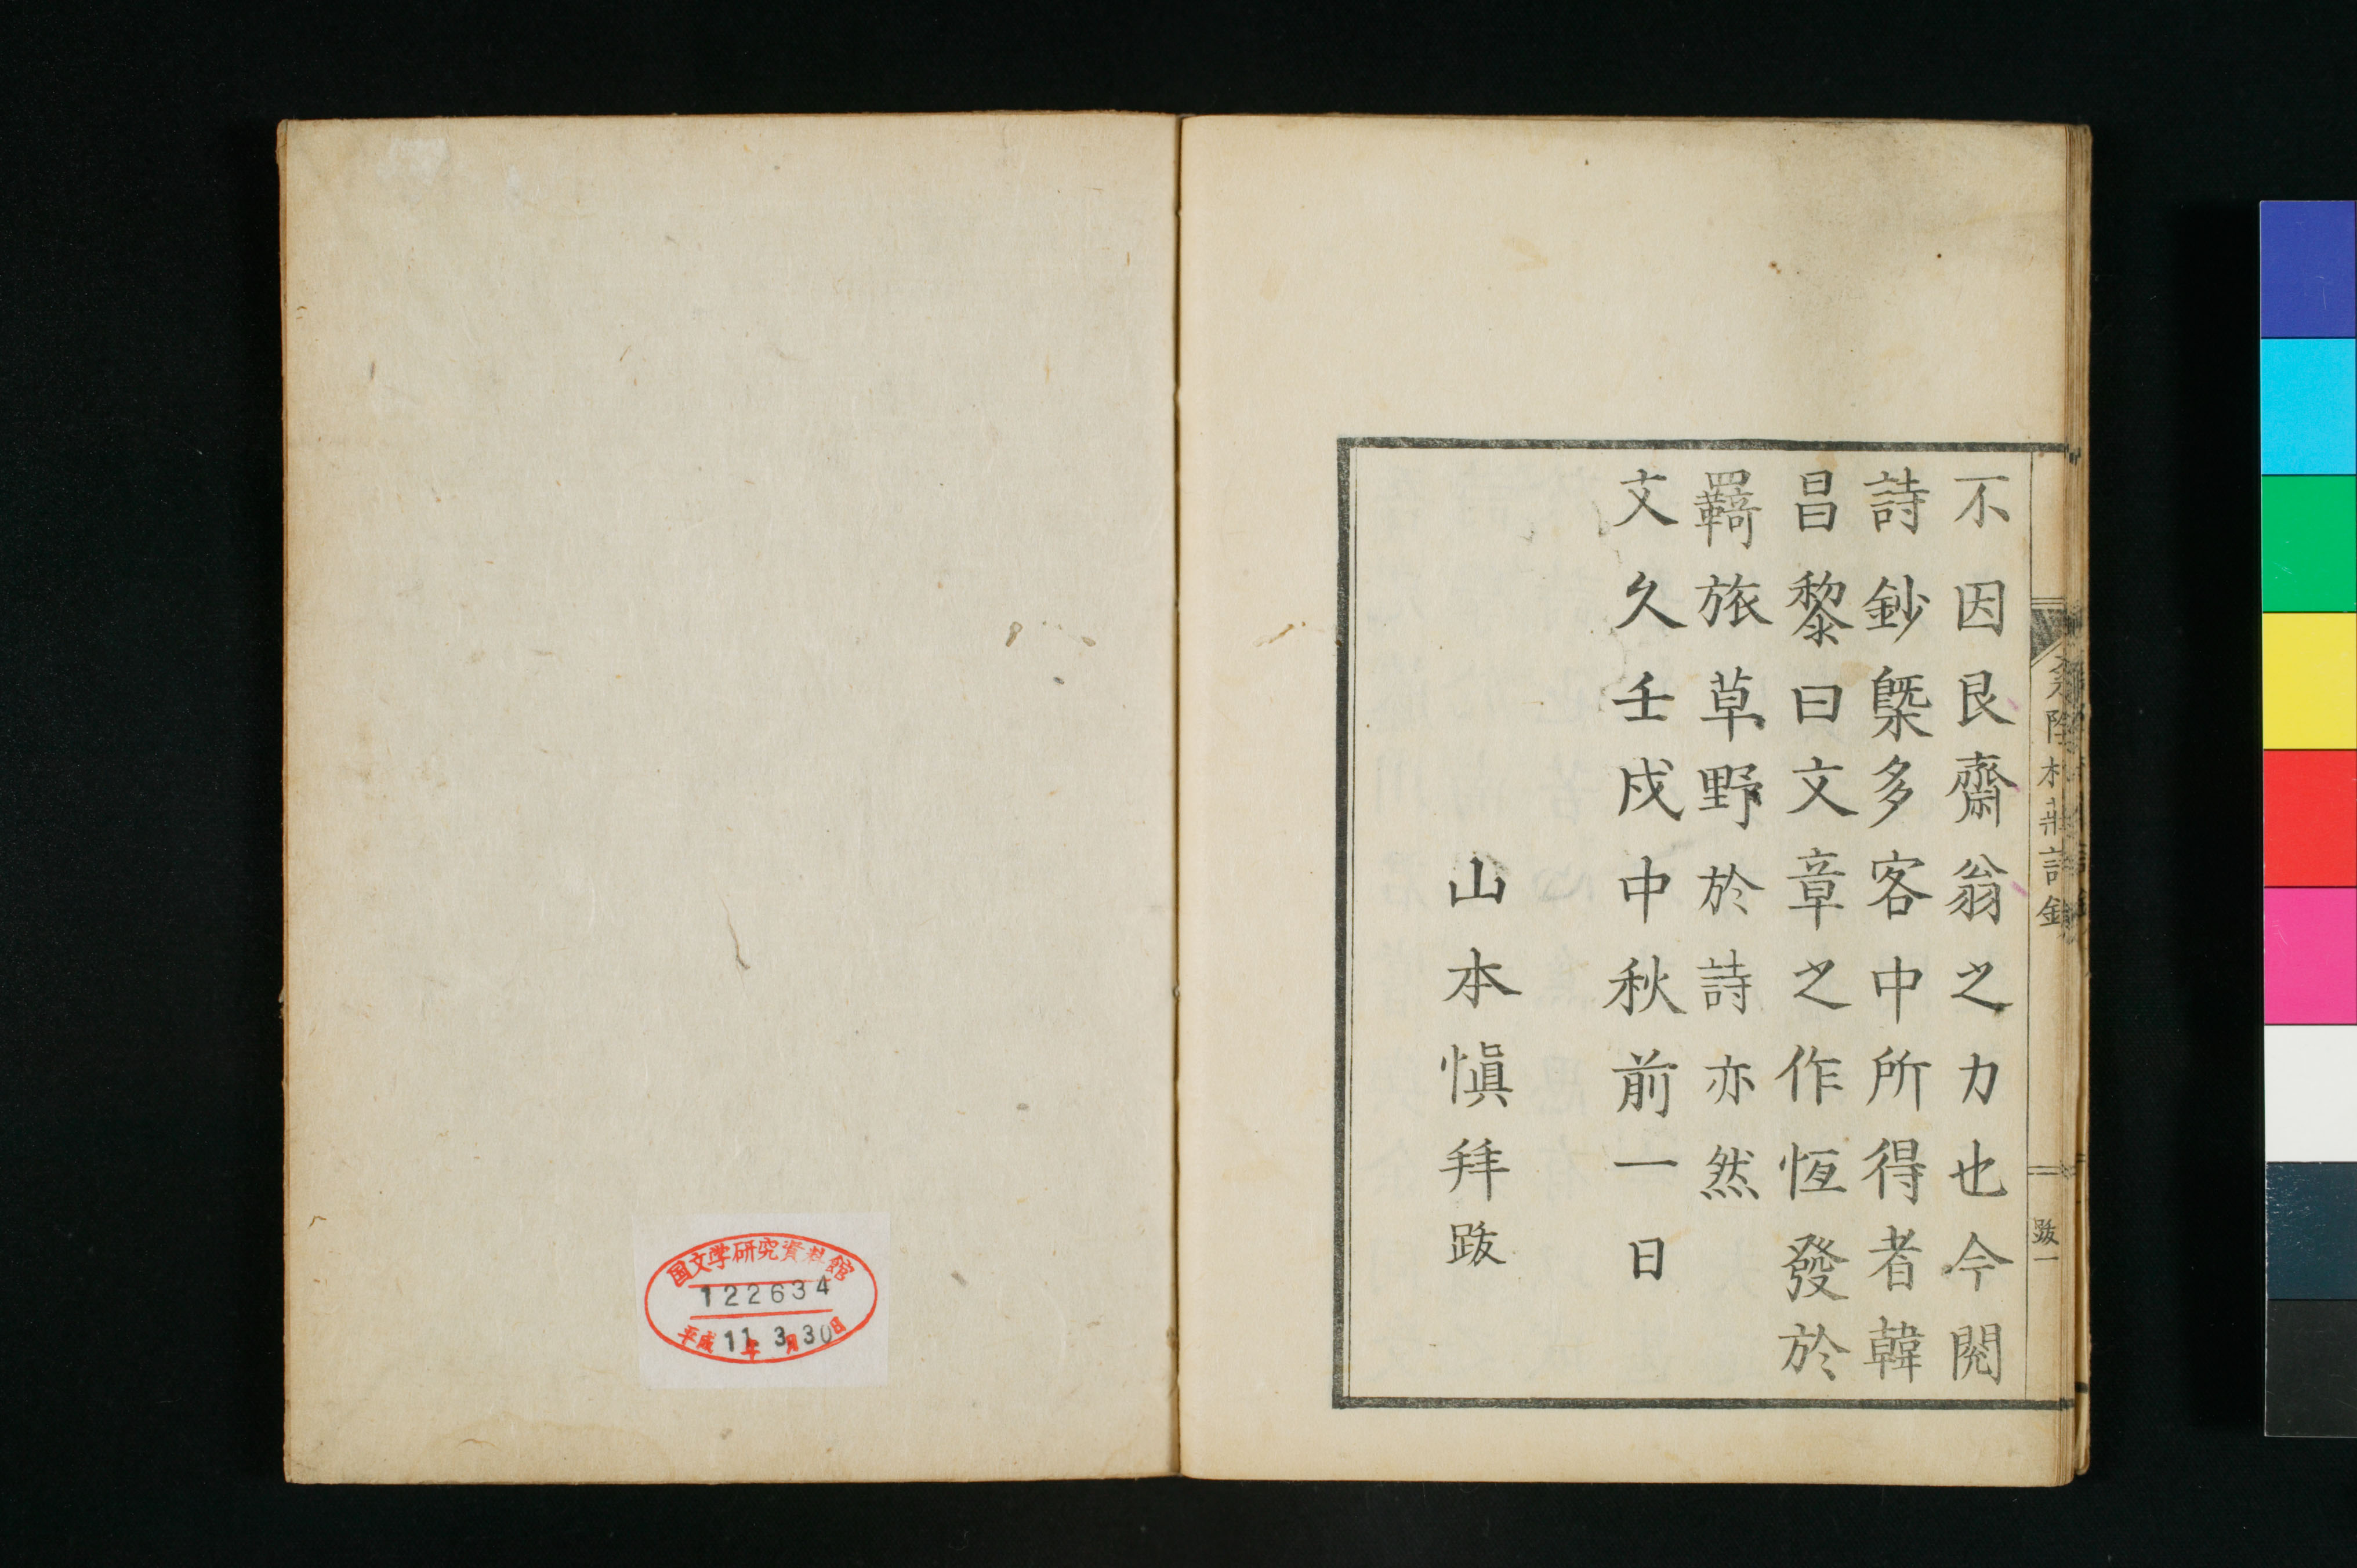 不因艮齋翁之力也今閲
詩鈔槩多客中所得者韓
昌黎曰文章之作恆發於
羇旅草野於詩亦然
文久壬戌中秋前一日
山本愼拜跋
跋一
国文学研究資料館
122634
平成11年3月30日